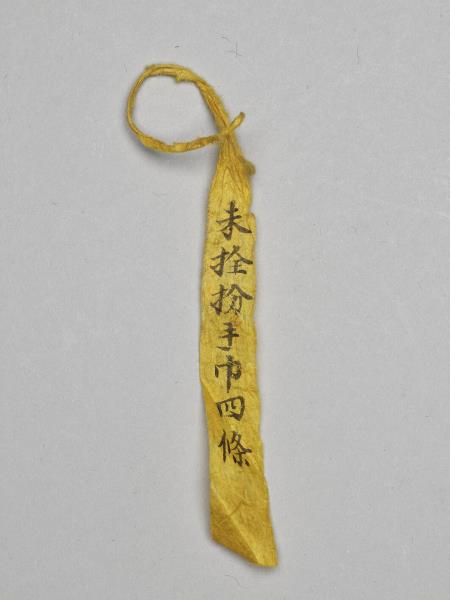 未拴扮手巾四條